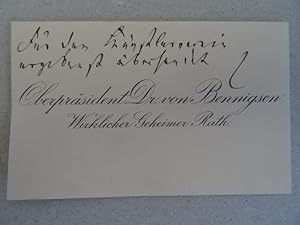 Für den Künstlerverein
ergebenst übersendet
Oberpräsident Dr. von Bennigsen
Wirklicher Geheimer Rath.